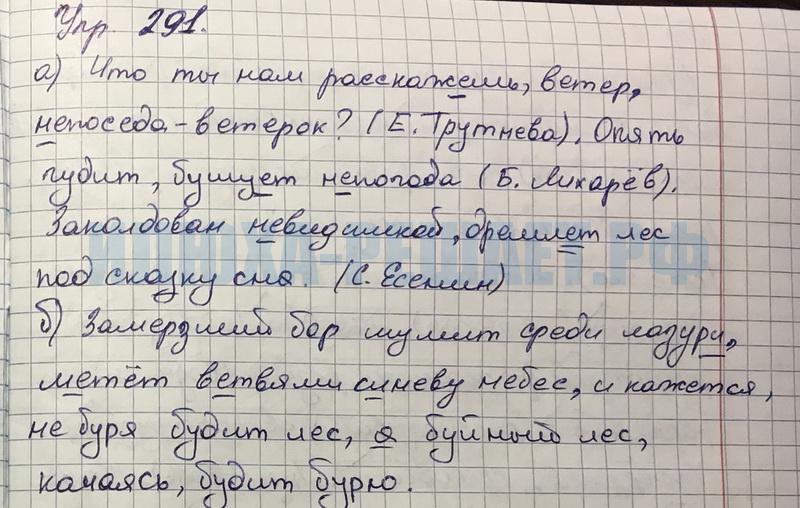 Упр. 291.
а) Что ты нам расскажешь, ветер,
непоседа-ветерок? (Е. Трутнева). Опять
гудит, бушует непогода (Б. Лихарёв).
Заколдован невидимкой, дремлет лес
под сказку сна. (С. Есенин)
б) Замерзший бор шумит среди лазури,
метёт ветвями синеву небес, и кажется,
не буря будит лес, а буйный лес,
качаясь, будит бурю.
ИЛЮХА-РЕШАЕТ.РФ